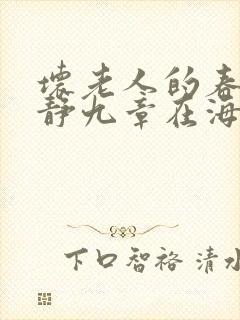 壞老人的春
靜九章在海
下口智裕 清水